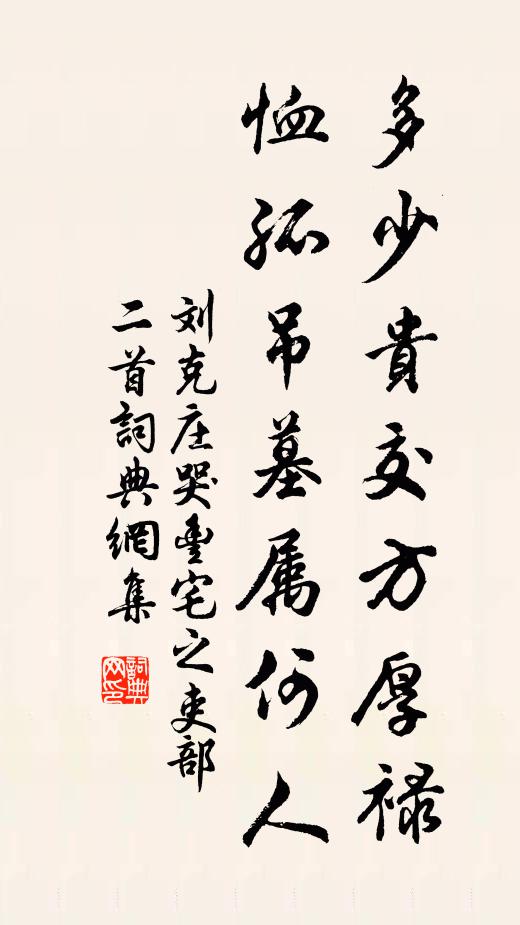 多少貴交方厚禄
恤孤吊墓属何人
刘克庄哭豊宅之吏部
二首詞典網集
詞典网印